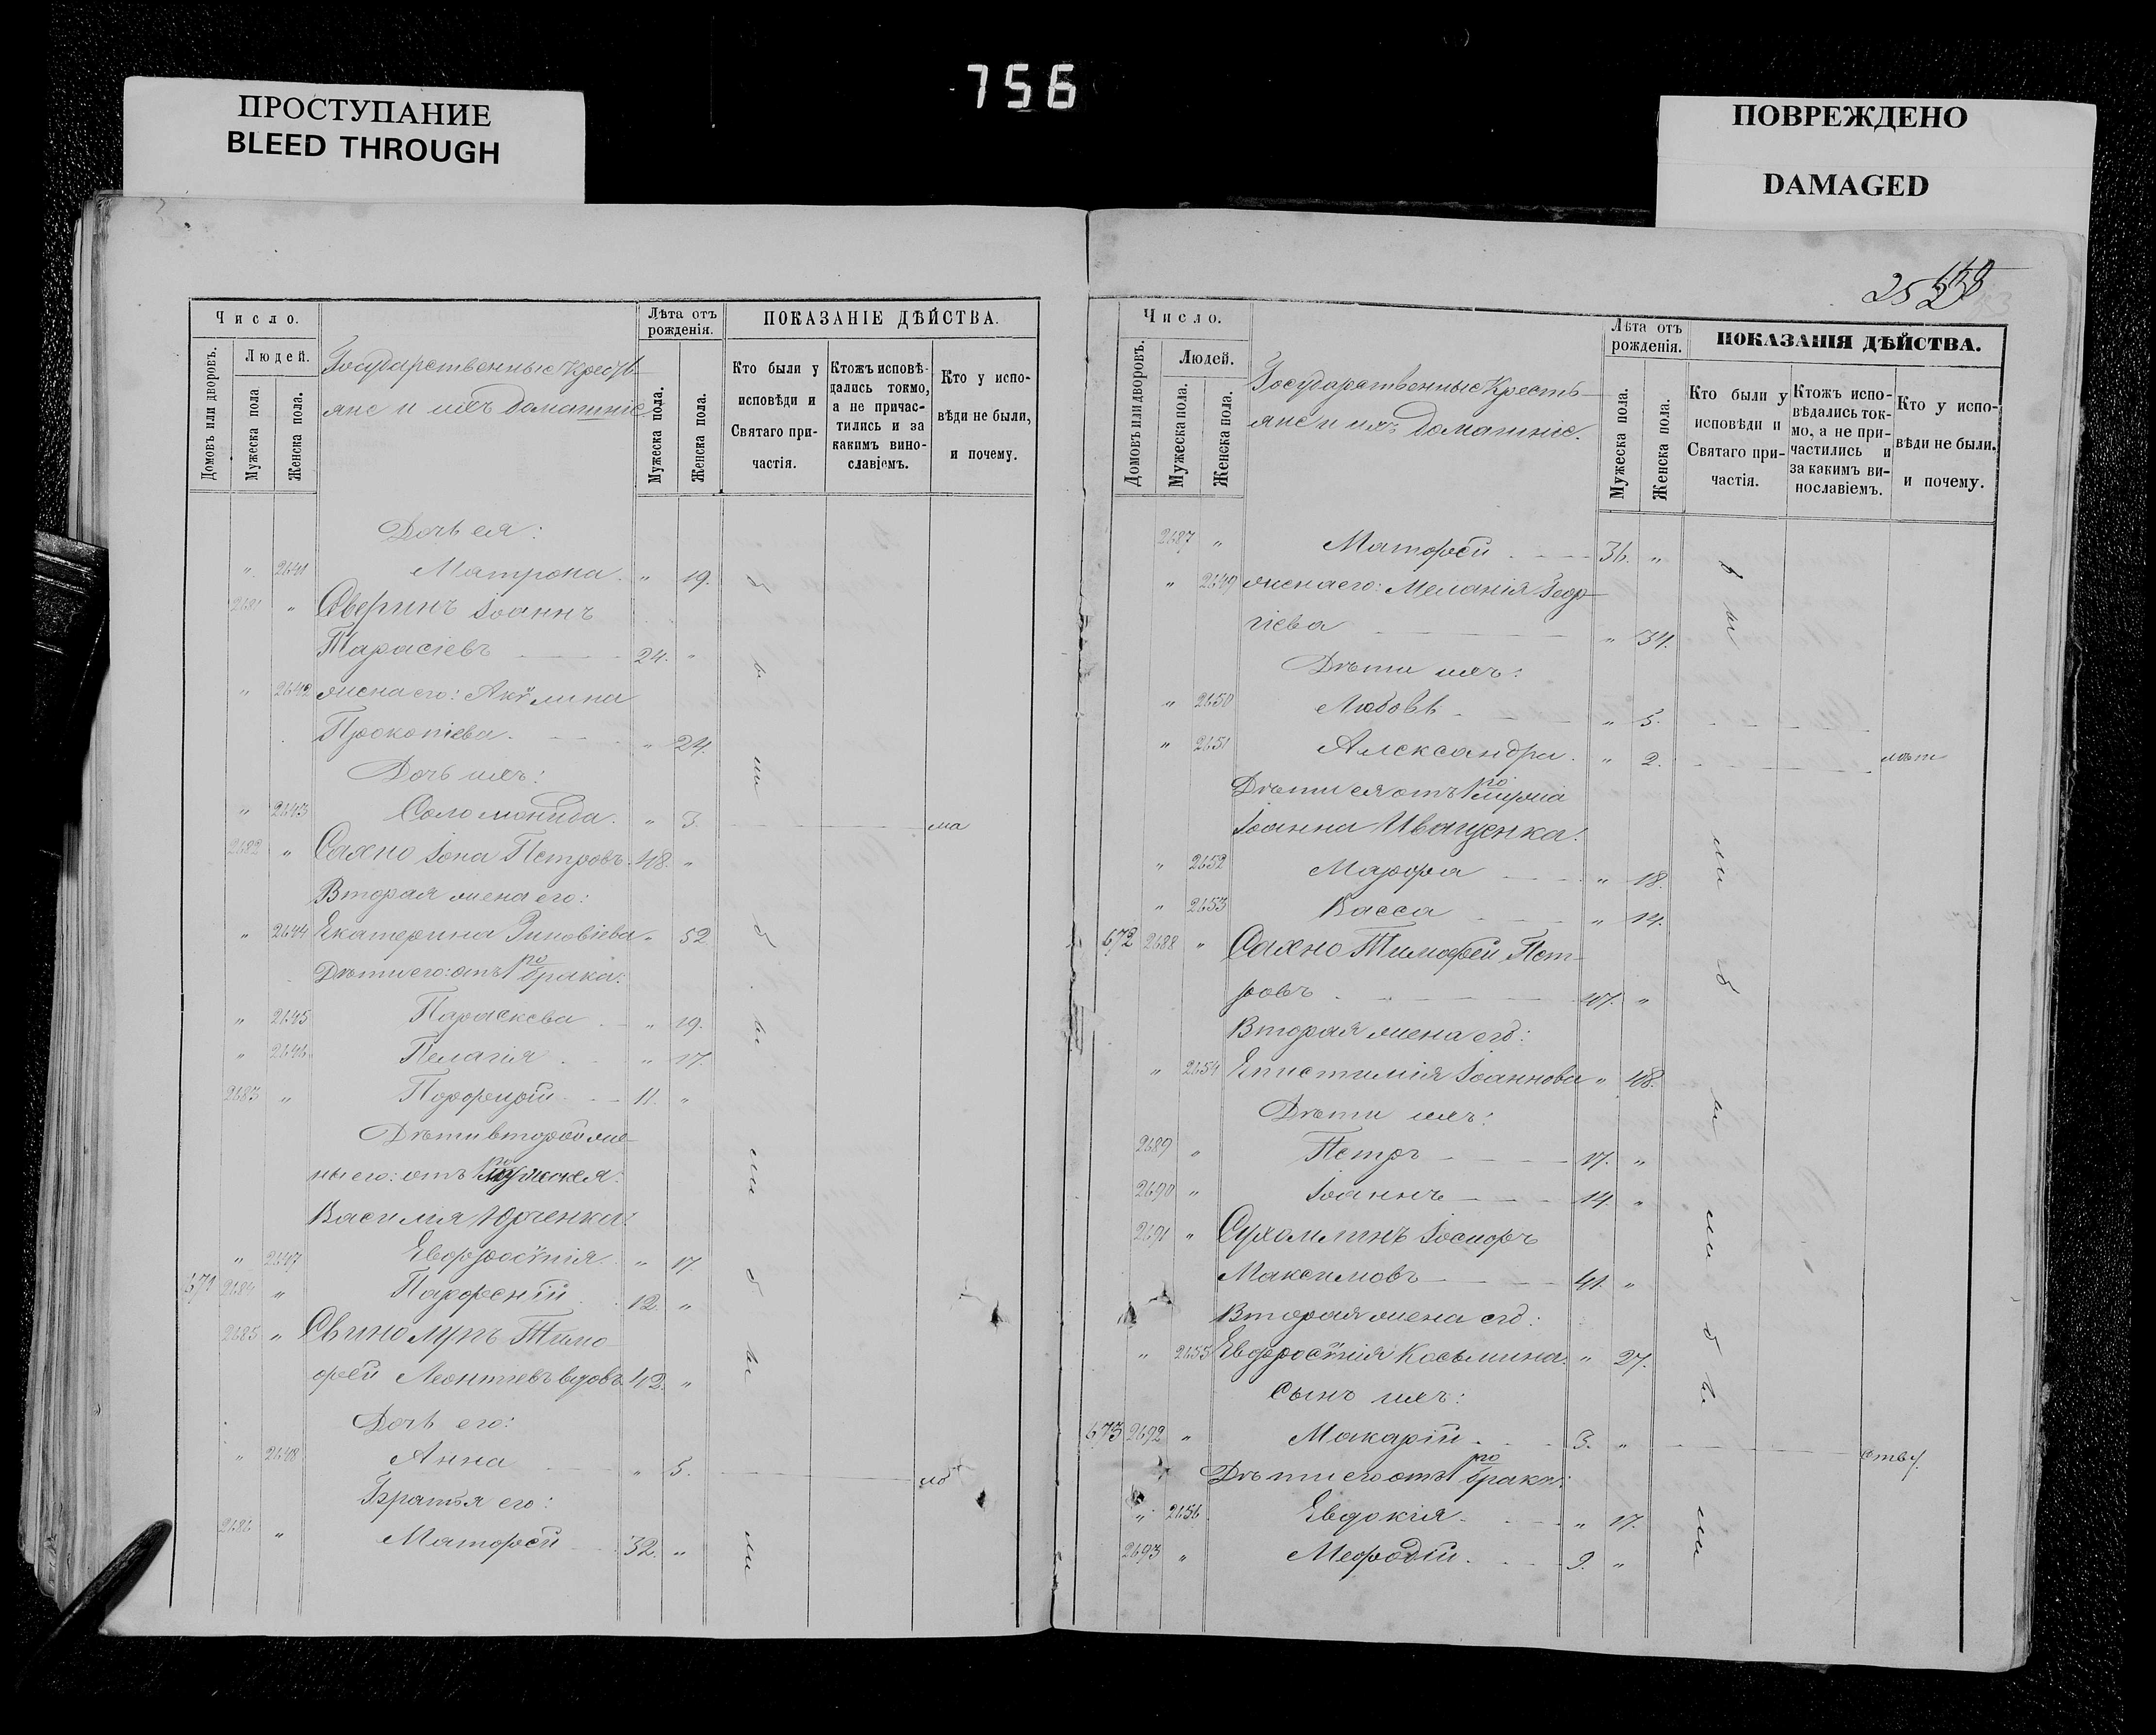 756
ПРОСТУПАНИЕ
BLEED THROUGH
ПОВРЕЖДЕНО
DAMAGED
Число.
Людей.
Домовъ или дворовъ.
Мужеска пола
Женска пола.
Государственные Кресть-
яне и ихъ домашніе
Лѣта отъ рожденія.
Мужеска пола.
Женска пола.
ПОКАЗАНІЕ ДѢЙСТВА.
Кто были у исповѣди и Святаго при-частія.
Ктожъ исповѣ-дались токмо, а не причас-тились и за какимъ вино-славіемъ.
Кто у испо-вѣди не были, и почему.
Дочь ея:
" 2641 Матрона " 19.
2681 " Іоаннъ
Тарасіевъ 24. "
" 2642 жена его: Акулина
Прокопіева " 24.
Дочь ихъ:
" 2643 Соломонида " 3.
2682 " Сахно Іона Петровъ 48. "
Вторая жена его:
" 2644 Екатерина Зиновіева " 52
Дѣти его: отъ 1го брака:
" 2645 Параскева " 19.
" 2646 Пелагія " 17.
2683 " Порфирій 11. "
Дѣти второй же-
ны его: отъ 1го мужа ея
Василія Юрченка:
" 2647 Евфросинія " 17.
671 2684 " Парфеній 12. "
2685 " Свинолупъ Тимо-
фей Леонтіевъ вдовъ 42. "
Дочь его:
" 2648 Анна " 5.
Братья его:
2686 " Матфей 32. "
Число.
Людей.
Домовъ или дворовъ.
Мужеска пола.
Женска пола.
Государственные Кресть-
яне и ихъ домашніе.
Лѣта отъ рожденія.
Мужеска пола.
Женска пола.
ПОКАЗАНІЯ ДѢЙСТВА.
Кто были у исповѣди и Святаго при-частія.
Ктожъ испо-вѣдались ток-мо, а не при-частились и за какимъ ви-нославіемъ.
Кто у испо-вѣди не были. и почему.
2687 " Матфей 36. "
" 2649 жена его: Меланія Геор-
гіева " 34.
Дѣти ихъ:
" 2650 Любовь " 5.
" 2651 Александра " 2. лѣт
Дѣти ея отъ 1го мужа
Іоанна Иващенка:
" 2652 Марфа " 18.
" 2653 Васса " 14.
672 2688 " Сахно Тимофей Пет-
ровъ 47. "
Вторая жена его:
" 2654 Епистимія Іоаннова " 48.
Дѣти ихъ:
2689 " Петръ 17. "
2690 " Іоаннъ 14. "
2691 " Сухомлинъ Іосифъ
Максимовъ 41. "
Вторая жена его:
" 2655 Евфросинія Косьмина " 27.
Сынъ ихъ:
673 2692 " Макарій 3. "
Дѣти его отъ 1го брака:
" 2656 Евдокія " 17.
2693 " Мефодій 9. "